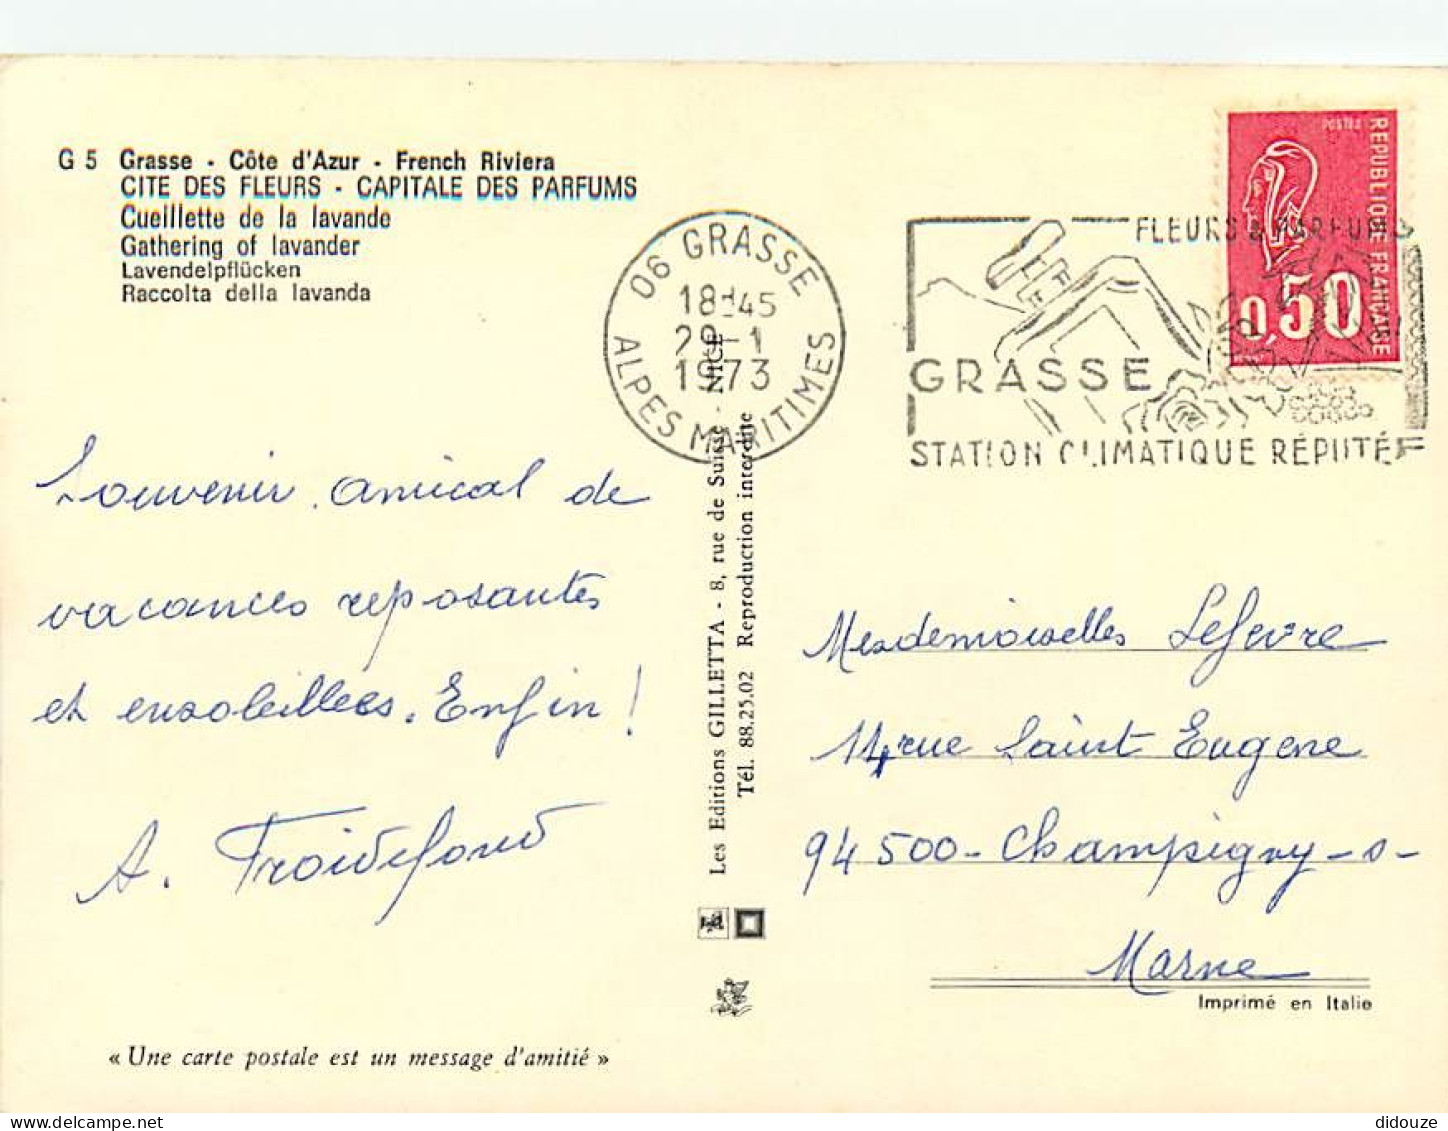 G 5 Grasse - Côte d'Azur - French Riviera
CITE DES FLEURS - CAPITALE DES PARFUMS
Cueillette de la lavande
Gathering of lavander
Lavendelpflücken
Raccolta della lavanda
Souvenir amical de
vacances reposantes
et ensoleillées. Enfin !
A. Froidefond
« Une carte postale est un message d'amitié »
Les Editions GILLETTA - 8, rue de Suisse - NICE
Tél. 88.25.02 Reproduction interdite
06 GRASSE
18H45
29-1
1973
ALPES MARITIMES
FLEURS & PARFUMS
GRASSE
STATION CLIMATIQUE RÉPUTÉE
POSTES
REPUBLIQUE FRANCAISE
0,50
Mesdemoiselles Lefevre
14 rue Saint Eugene
94500 - Champigny-s-
Marne
Imprimé en Italie
didouze